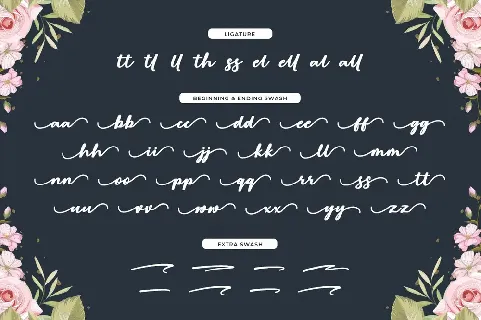 LIGATURE
tt tl ll th ss el ell al all
BEGINNING & ENDING SWASH
aa bb cc dd ee ff gg
hh ii jj kk ll mm
nn oo pp qq rr ss tt
uu vv ww xx yy zz
EXTRA SWASH